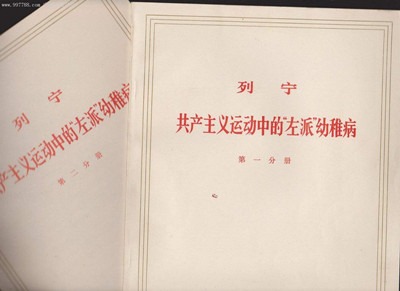 www.997788.com
列宁
共产主义运动中的“左派”幼稚病
第一分册
列宁
产主义运动中的“左派”幼稚病
第二分册